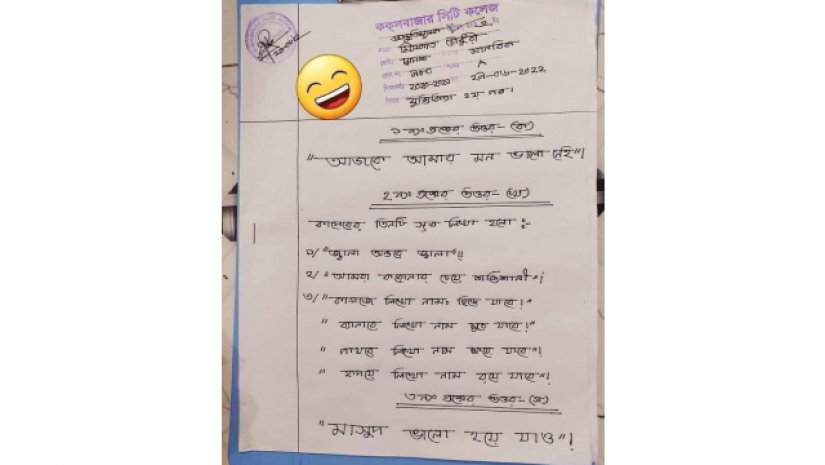 কক্সবাজার সিটি কলেজ
মানবিক
A
২৭-০৬-২০২২
যুক্তিবিদ্যা ২য় পত্র।
১ নং প্রশ্নের উত্তর- (ক)
"আজকে আমার মন ভালো নেই"।
২ নং প্রশ্নের উত্তর- (খ)
তিনটি সূত্র লিখা হলো :-
১/ "জ্বালা অন্তরে জ্বালা"॥
২/ "আমরা করোনার চেয়ে শক্তিশালী"।
৩/ "কাগজে লিখো নাম ছিঁড়ে যাবে।"
" ব্যানারে লিখো নাম মুছে যাবে।"
" পাথরে লিখো নাম ক্ষয়ে যাবে"।
" হৃদয়ে লিখো নাম রয়ে যাবে"।
৩ নং প্রশ্নের উত্তর- (গ)
"মাসুদ ভালো হয়ে যাও"।